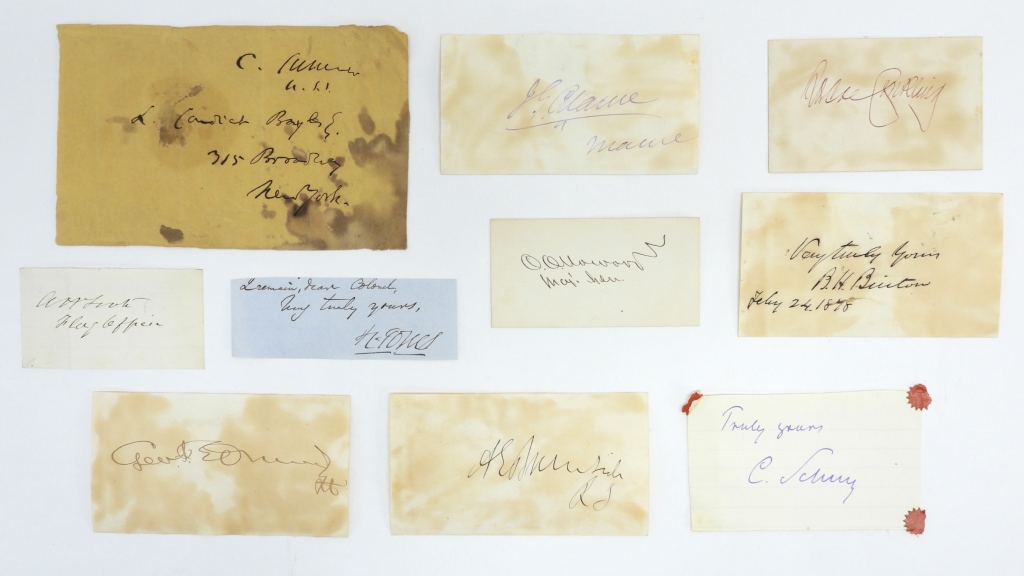 C. Sumner
U.S.S.
L. Candich Bayles Esq.
315 Broadway
New York.
J G Blaine
Maine
Roscoe Conkling
O. O. Howard
Maj. Gen.
Very truly yours
B. H.
Feby 24. 1878
A H Foote
Flag Officer
I remain, dear Colonel,
Very truly yours,
Geo F Edmunds
Vt
A E Burnside
R I
Truly yours
C. Schurz